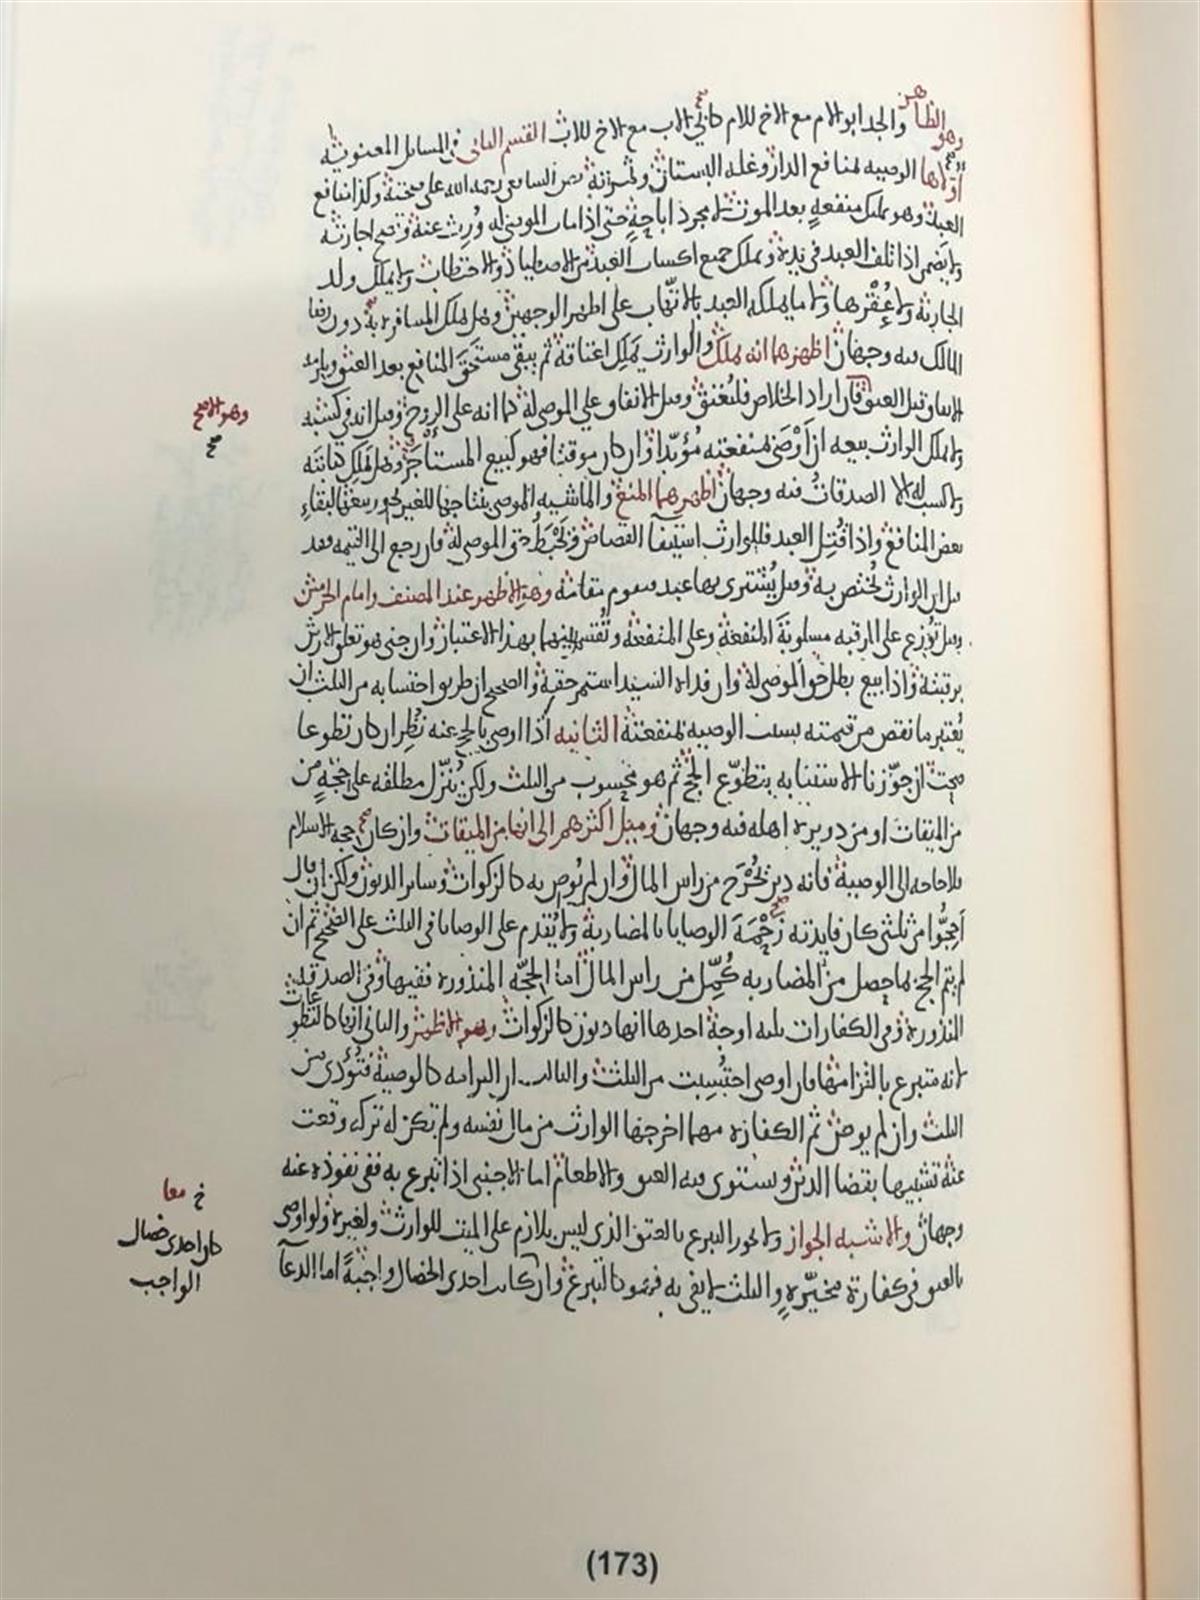 وهو الظاهر والجد ابو الام مع الاخ للام كابي الاب مع الاخ للاب القسم الثاني في المسائل المعنوية
اولاها الوصية بمنافع الدار وغلة البستان وثمرته نص الشافعي رحمه الله على صحته وكذا منافع
العبد وهو تمليك منفعة بعد الموت لا مجرد اباحة حتى اذا مات الموصى له ورث عنه وتصح اجارته
ولا يضمن اذا تلف العبد في يده ويملك جميع اكساب العبد من الاصطياد والاحتطاب ولا يملك ولد
الجارية ولا عقرها ولا ما يملكه العبد بالاتهاب على اظهر الوجهين وهل يملك المسافرة به دون رضا
المالك فيه وجهان اظهرهما انه يملك والوارث يملك اعتاقه ثم يبقى مستحق المنافع بعد العتق ويلزمه
الانفاق قبل العتق فان اراد الخلاص فليعتق وقيل الانفاق على الموصى له كما انه على الزوج وقيل انه في كسبه
ولا يملك الوارث بيعه ان اوصى بمنفعته مؤبدا وان كان موقتا فهو كبيع المستأجر وهل يملك كتابته
ولا كسب له الا الصدقات فيه وجهان اظهرهما المنع والماشية الموصى بنتاجها للغير يجوز بيعها لبقاء
بعض المنافع واذا قتل العبد فللوارث استيفا القصاص ويحبط حق الموصى له فان رجع الى القيمة فقد
قيل ان الوارث يختص به وقيل يشترى بها عبد يقوم مقامه وهو الاظهر عند المصنف وامام الحرمين
وقيل توزع على الرقبة مسلوبة المنفعة وعلى المنفعة وتقسم بينهما بهذا الاعتبار وان جنى هو تعلق الارش
برقبته واذا بيع بطل حق الموصى له وان فداه السيد استمر حقه والصحيح ان طريق احتسابه من الثلث ان
يعتبر ما نقص من قيمته بسبب الوصية بمنفعته الثانيه اذا اوصى بالحج عنه نظر ان كان تطوعا
صحت ان جوزنا الاستنابة بتطوع الحج ثم هو محسوب من الثلث ولكن ينزل مطلقه على حجة من
من الميقات او من دويرة اهله فيه وجهان وميل اكثرهم الى انها من الميقات وان كان حجة الاسلام
فلا حاجة الى الوصية فانه دين يخرج من راس المال وان لم يوص به كالزكوات وسائر الديون ولكن ان قال
احجوا من ثلثي كان فايدته زحمة الوصايا بالمضاربة ولا يقدم على الوصايا في الثلث على الصحيح ثم ان
لم يتم الحج بما حصل من المضاربة كمل من راس المال اما الحجة المنذورة ففيها وفي الصدقة
المنذورة وفي الكفارات ثلثة اوجه احدها انها ديون كالزكوات وهو الاظهر والثاني انها كالتطوعات
لانه متبرع بالتزامها فان اوصى احتسبت من الثلث والثالث ان النزامه كالوصية فتؤدى من
الثلث وان لم يوص ثم الكفارة مهما اخرجها الوارث من مال نفسه ولم تكن له تركة وقعت
عنه تشبيها بقضا الدين ويستوي فيه العتق والاطعام اما الاجنبي اذا تبرع به ففي نفوذه عنه
وجهان والاشبه الجواز ولا يجوز التبرع بالعتق الذي ليس بلازم على الميت للوارث ولغيره ولو اوصى
بالعتق في كفارة مخيرة والثلث لا يفي به فهو كالتبرع وان كانت احدى الخصال واجبة اما الدعا
وهو الاصح
صح
خ معا
كان احدى خصال
الواجب
(173)